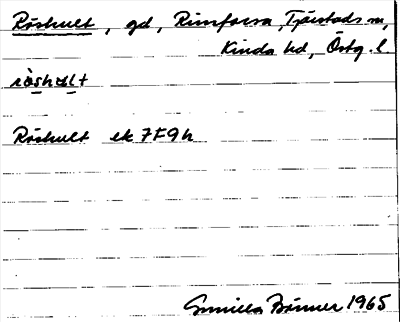 Röshult, gd, Rimforsa, Tjärstads sn,
Kinda hd, Östg. l
rö̀shul̲t
Röshult ek 7F9h
Gunilla Bonner 1965